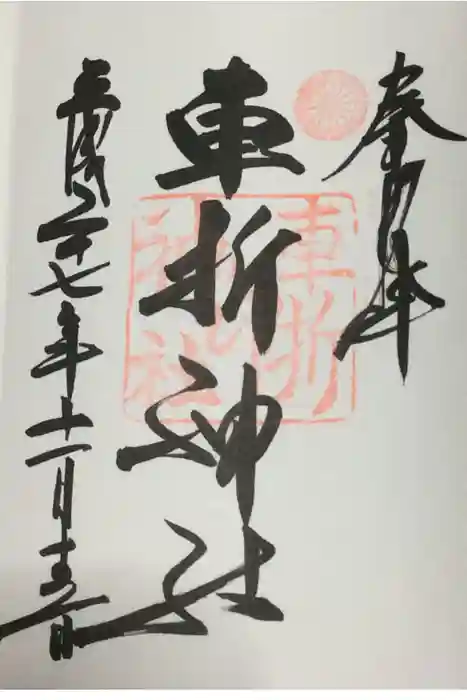 奉拝
車折神社
平成二十七年十一月十五日
車折
神社